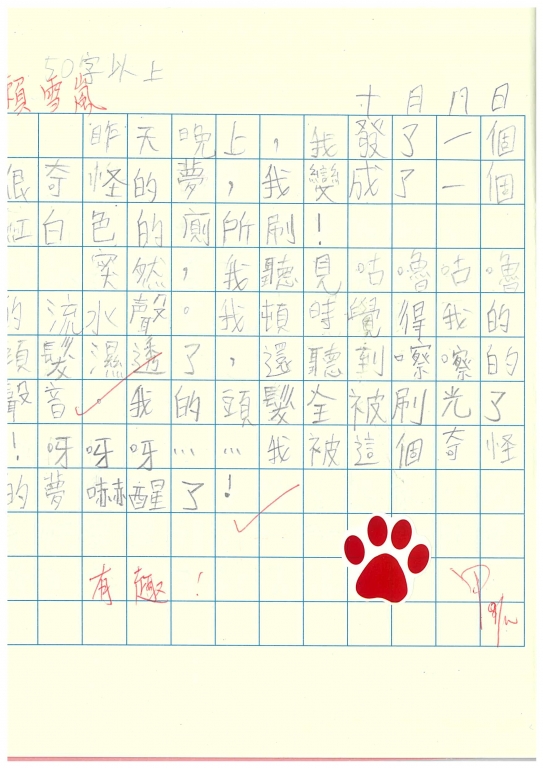 50字以上
雪嵐
十月八日
昨天晚上，我發了一個
很奇怪的夢，我變成了一個
紅白色的廁所刷！
突然，我聽見咕嚕咕嚕
的流水聲。我頓時覺得我的
頭髮濕透了，還聽到嚓嚓的
聲音。我的頭髮全被刷光了
！呀呀呀……我被這個奇怪
的夢嚇醒了！
有趣！
甲